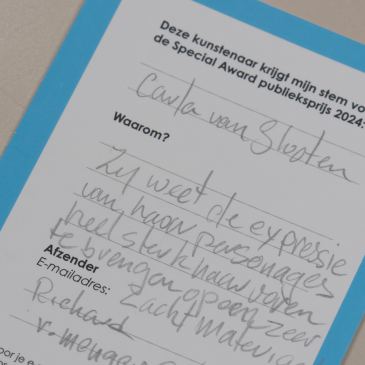 Deze kunstenaar krijgt mijn stem vo
de Special Award publieksprijs 2024:
Carla van Slooten
Waarom?
Zij weet de expressie
van haar personages
heel sterk naar voren
te brengen op een zeer
Afzender
zacht materiaa
E-mailadres:
Richard
oor je e